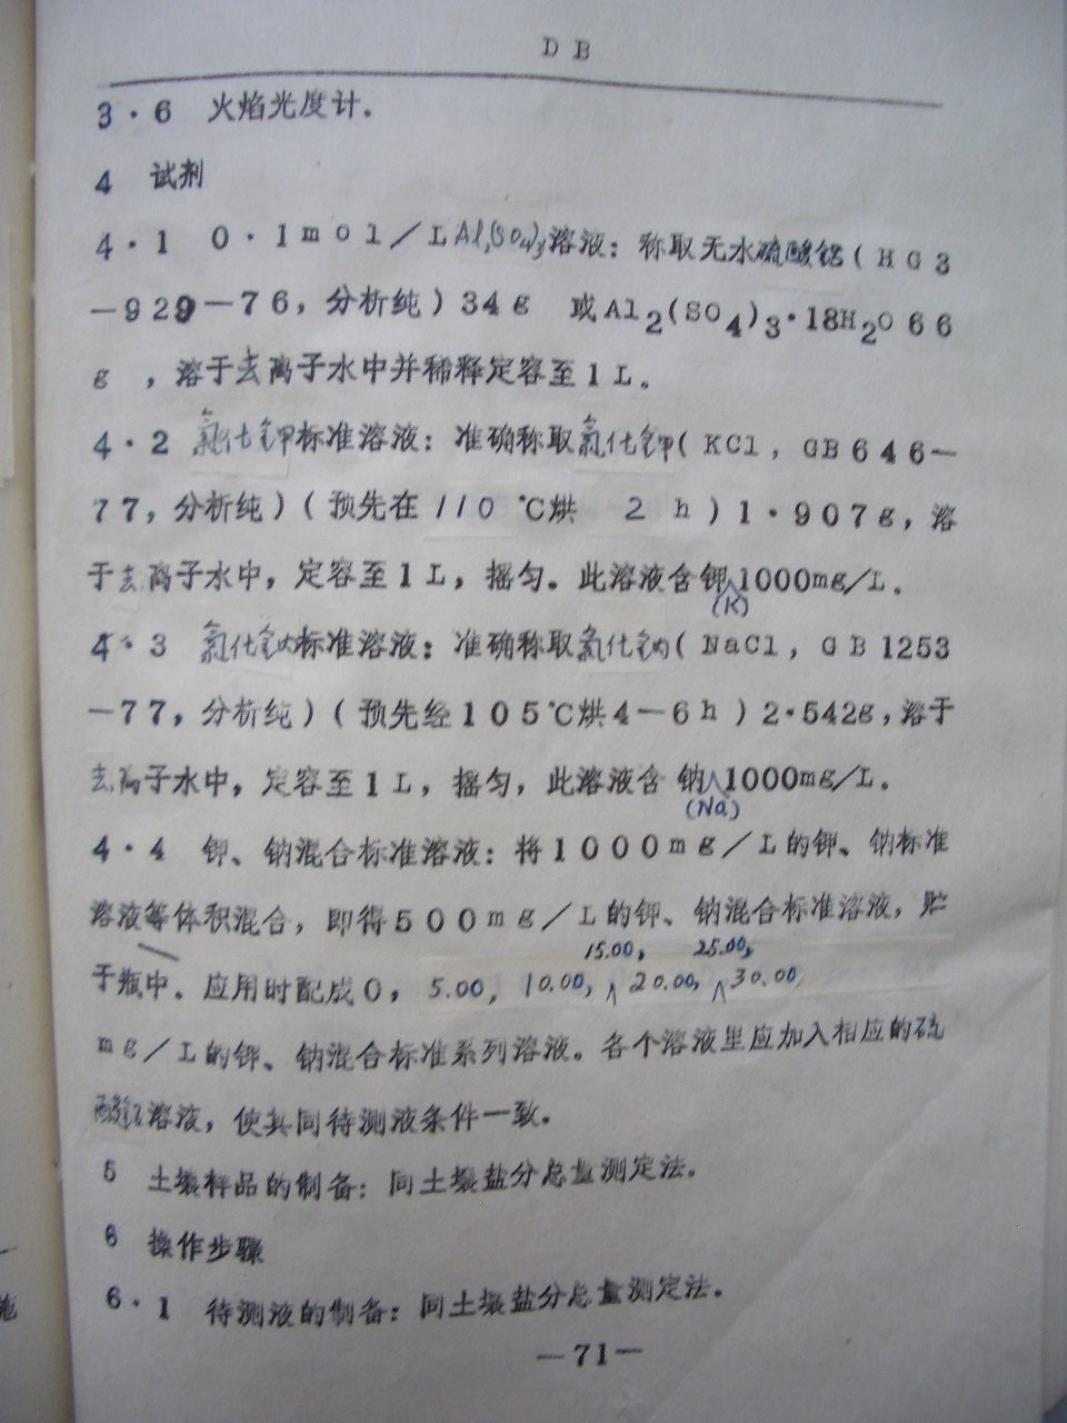 DB
3·6 火焰光度计.
4 试剂
4·1 0·1mol/LAl₂(SO₄)₃溶液:称取无水硫酸铝(HG3
-929-76,分析纯)34g 或Al₂(SO₄)₃·18H₂O 66
g ,溶于去离子水中并稀释定容至1L。
4·2 氯化钾标准溶液:准确称取氯化钾(KCl,GB646-
77,分析纯)(预先在110℃烘 2h)1·907g,溶
于去离子水中,定容至1L,摇匀。此溶液含钾(K)1000mg/L.
4·3 氯化钠标准溶液:准确称取氯化钠(NaCl,GB1253
-77,分析纯)(预先经105℃烘4-6h)2·542g,溶于
去离子水中,定容至1L,摇匀,此溶液含 钠(Na)1000mg/L.
4·4 钾、钠混合标准溶液:将1000mg/L的钾、钠标准
溶液等体积混合,即得500mg/L的钾、钠混合标准溶液,贮
于瓶中.应用时配成0,5.00,10.00,15.00,20.00,25.00,30.00
mg/L的钾、钠混合标准系列溶液。各个溶液里应加入相应的硫
酸铝溶液,使其同待测液条件一致.
5 土壤样品的制备:同土壤盐分总量测定法.
6 操作步骤
6·1 待测液的制备:同土壤盐分总量测定法.
-71-
施